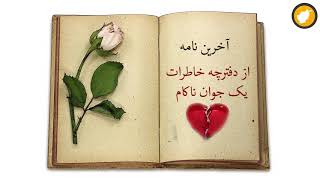 آخرین نامه
از دفترچه خاطرات
یک جوان ناکام